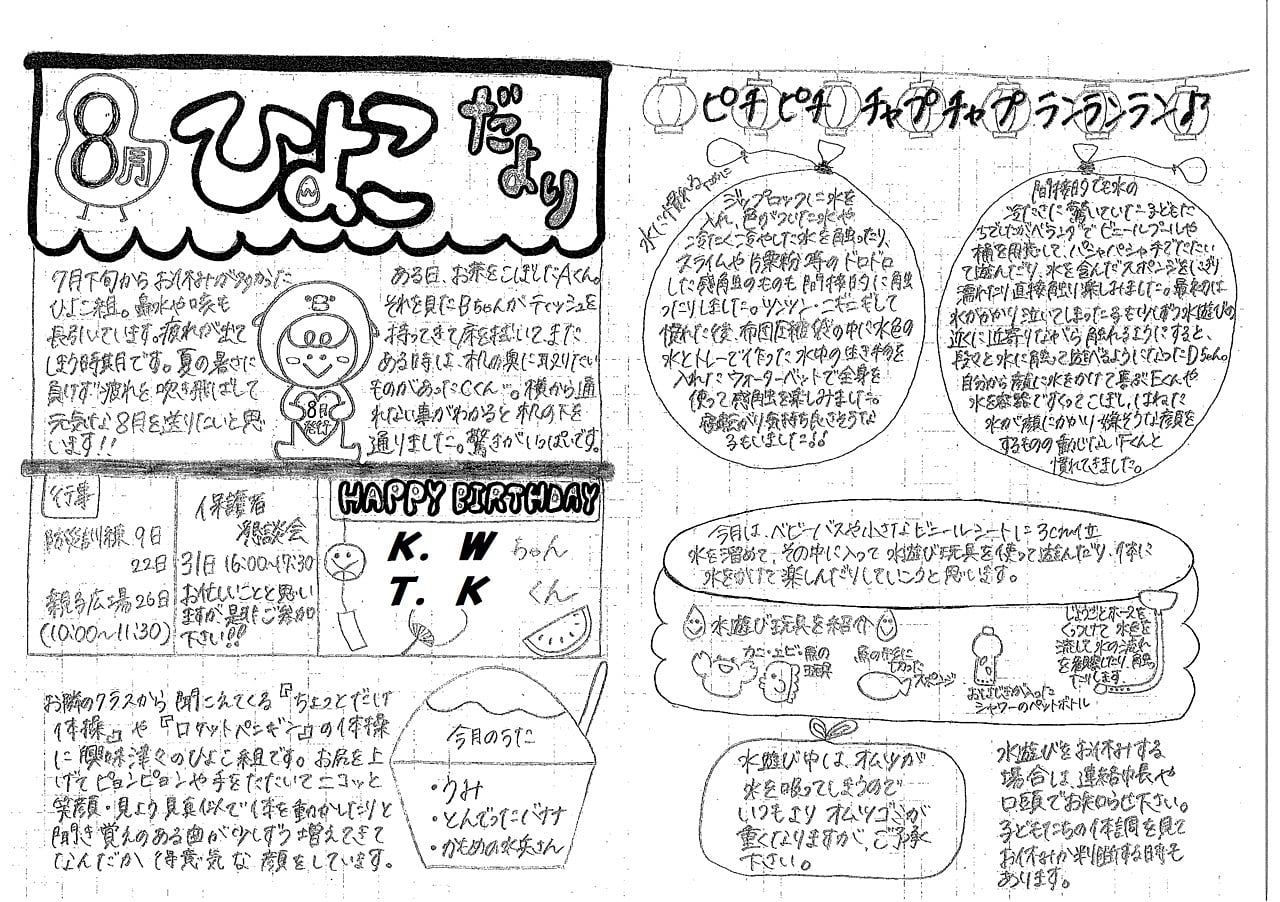 8月
ひよこ
だより
7月下旬からお休みが多かった
ひよこ組。鼻水や咳も
長引いています。疲れが出て
しまう時期です。夏の暑さに
負けず疲れを吹き飛ばして
元気な8月を送りたいと思
います!!
8月
発行
ある日、お茶をこぼしたAくん。
それを見たBちゃんがティッシュを
持ってきて床を拭いて、また
ある時は、机の奥に取りたい
ものがあったCくん…。横から通
れない事がわかると机の下を
通りました。驚きがいっぱいです。
行事
防災訓練 9日
22日
親子広場26日
(10:00~11:30)
保護者
懇談会
31日 16:00~17:30
お忙しいことと思い
ますが、是非ご参加
下さい!!
HAPPY BIRTHDAY
K. W ちゃん
T. K くん
お隣のクラスから聞こえてくる『ちょっとだけ
体操』や『ロケットペンギン』の体操
に興味津々のひよこ組です。お尻を上
げてピョンピョンや手をたたいてニコッと
笑顔・見よう見真似で体を動かしたりと
聞き覚えのある曲が少しずつ増えてきて
なんだか得意気な顔をしています。
今月のうた
・うみ
・とんでったバナナ
・かもめの水兵さん
ピチピチ チャプチャプ ランランラン♪
水に慣れるために
ジップロックに水を
入れ、色がついた水や
冷たく冷やした水を触ったり、
スライムや片栗粉等のドロドロ
した感触のものも間接的に触
ったりしました。ツンツン・ニギニギして
慣れた後、布団圧縮袋の中に水色の
水とトレーで作った水中の生き物を
入れたウォーターベットで全身を
使って感触を楽しみました。
寝転がり気持ち良さそうな
子もいました♪♪
間接的でも水の
冷たさに驚いていた子どもた
ちでしたがベランダでビニールプールや
桶を用意して、パシャパシャ手でたたい
て遊んだり、水を含んだスポンジをにぎり
濡れたり直接触り楽しみました。最初は
水がかかり泣いてしまった子も少しずつ水遊びの
近くに近寄りながら触れるようにすると、
段々と水に触って遊べるようになったDちゃん。
自分から顔に水をかけて喜ぶEくんや
水を容器ですくってこぼし、はねた
水が顔にかかり嫌そうな顔を
するものの動じないFくんと
慣れてきました。
今月は、ベビーバスや小さなビニールシートに3cm位
水を溜めて、その中に入って水遊び玩具を使って遊んだり、体に
水をかけて楽しんだりしていこうと思います。
水遊び玩具を紹介
カニ・エビ・魚の
玩具
魚の形に
切った
スポンジ
おはじきが入った
シャワーのペットボトル
じょうごとホースを
くっつけて水色を
流して水の流れ
を観察したり、触
ったりします。
水遊び中は、オムツが
水を吸ってしまうので
いつもよりオムツゴミが
重くなりますが、ご了承
下さい。
水遊びをお休みする
場合は、連絡帳や
口頭でお知らせ下さい。
子どもたちの体調を見て
お休みか判断する時も
あります。